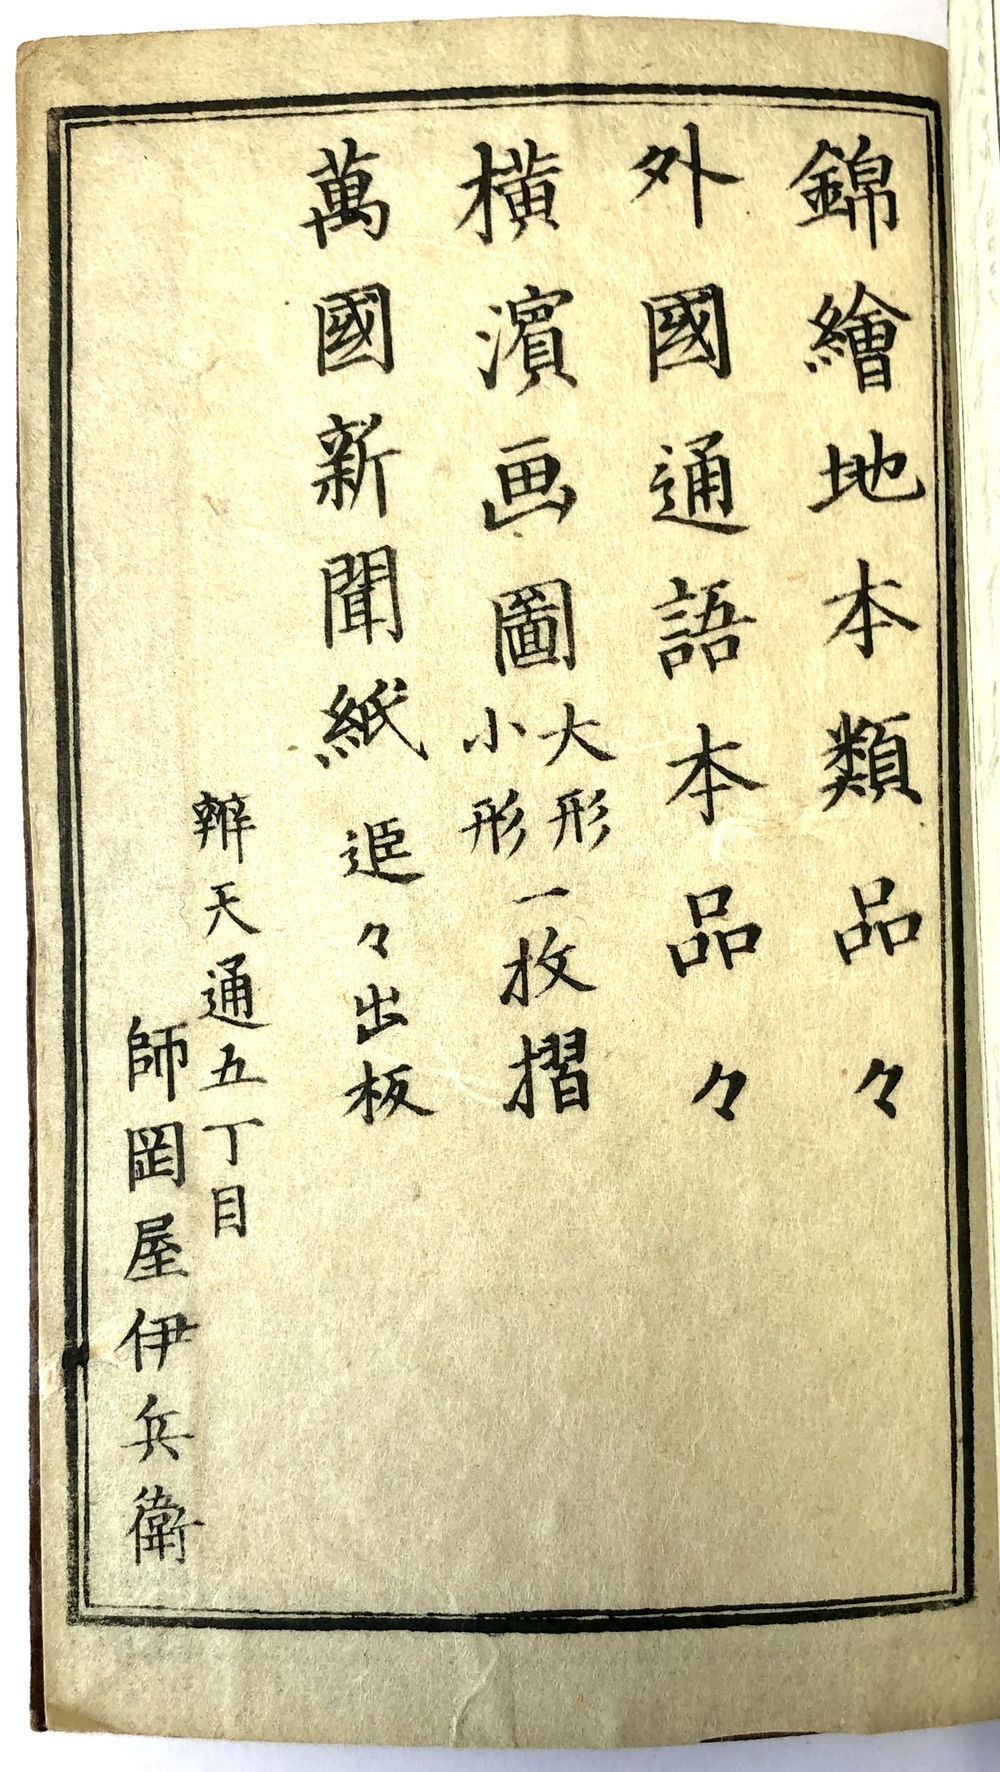 錦繪地本類品々
外國通語本品々
横濱画圖大形小形一枚摺
萬國新聞紙追々出板
辨天通五丁目
師岡屋伊兵衛